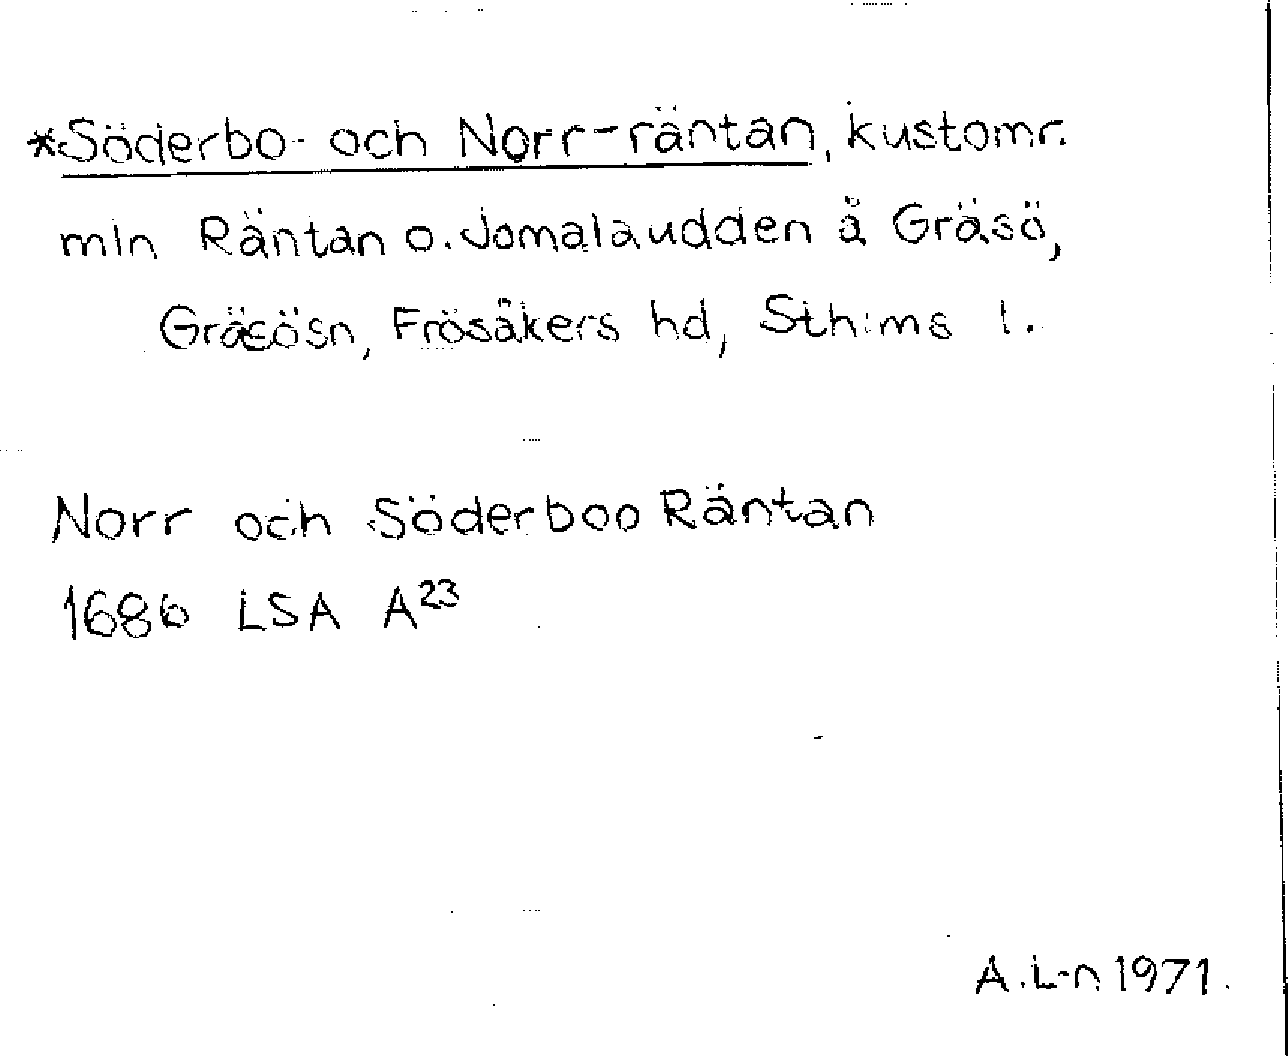 *Söderbo- och Norr-räntan, kustomr.
mln Räntan o. Jomalaudden å Gräsö,
Gräsösn, Frösåkers hd, Sthms l.
Norr och Söderboo Räntan
1686 LSA A23
A.L-n 1971.